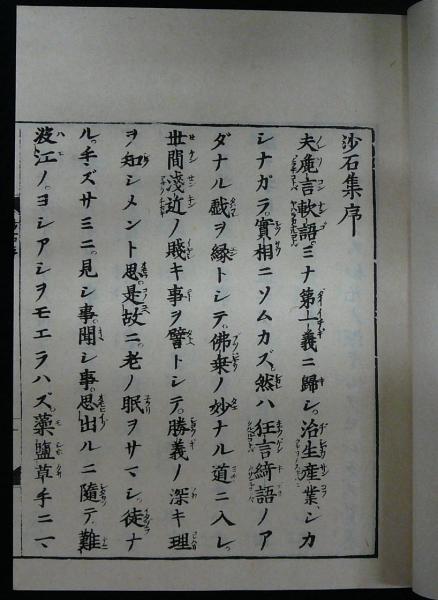 沙石集序
夫麁言軟語。ミナ第一義ニ歸シ。治生産業。シカ
シナガラ。實相ニソムカズ。然ハ狂言綺語ノア
ダナル戯ヲ縁トシテ。佛乗ノ妙ナル道ニ入レ。
世間淺近ノ賤キ事ヲ譬トシテ。勝義ノ深キ理
ヲ知シメント思。是故ニ。老ノ眠ヲサマシ。徒ナ
ル。手ズサミニ。見シ事。聞シ事。思出ルニ隨テ。難
波江ノ。ヨシアシヲモエラハズ。藻鹽草手ニマ